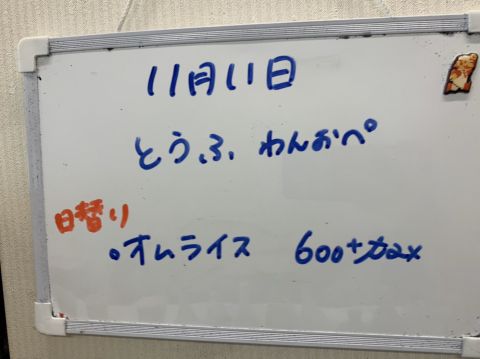 11月11日
とうふ わんおペ
日替り
オムライス 600+tax